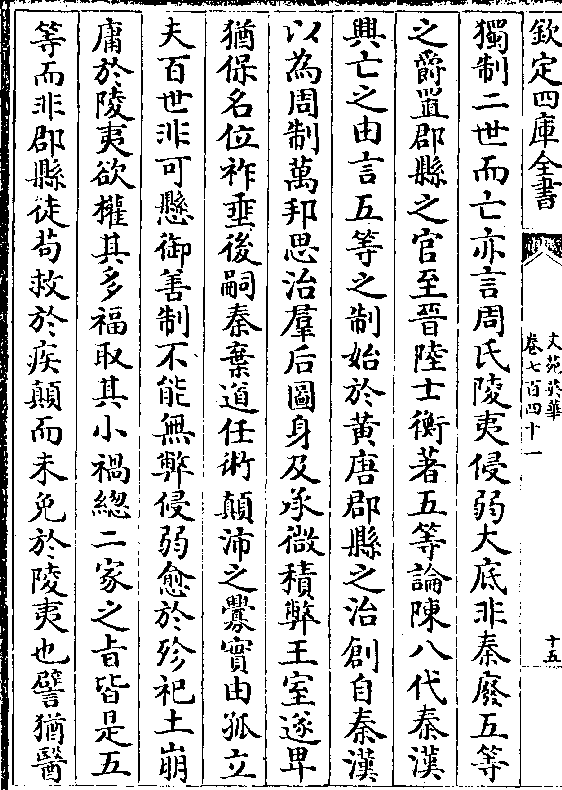 欽定四庫全書
文苑英華
卷七百四十一
十五
獨制二世而亡亦言周氏陵夷侵弱大底非秦廢五等
之爵置郡縣之官至晉陸士衡著五等論陳八代秦漢
興亡之由言五等之制始於黄唐郡縣之治創自秦漢
以為周制萬邦思治羣后圖身及承微積弊王室遂卑
猶保名位祚垂後嗣秦棄道任術顛沛之釁實由孤立
夫百世非可懸御善制不能無弊侵弱愈於殄祀土崩
庸於陵夷欲權其多福取其小禍緫二家之㫖皆是五
等而非郡縣徒苟救於疾顛而未免於陵夷也譬猶醫